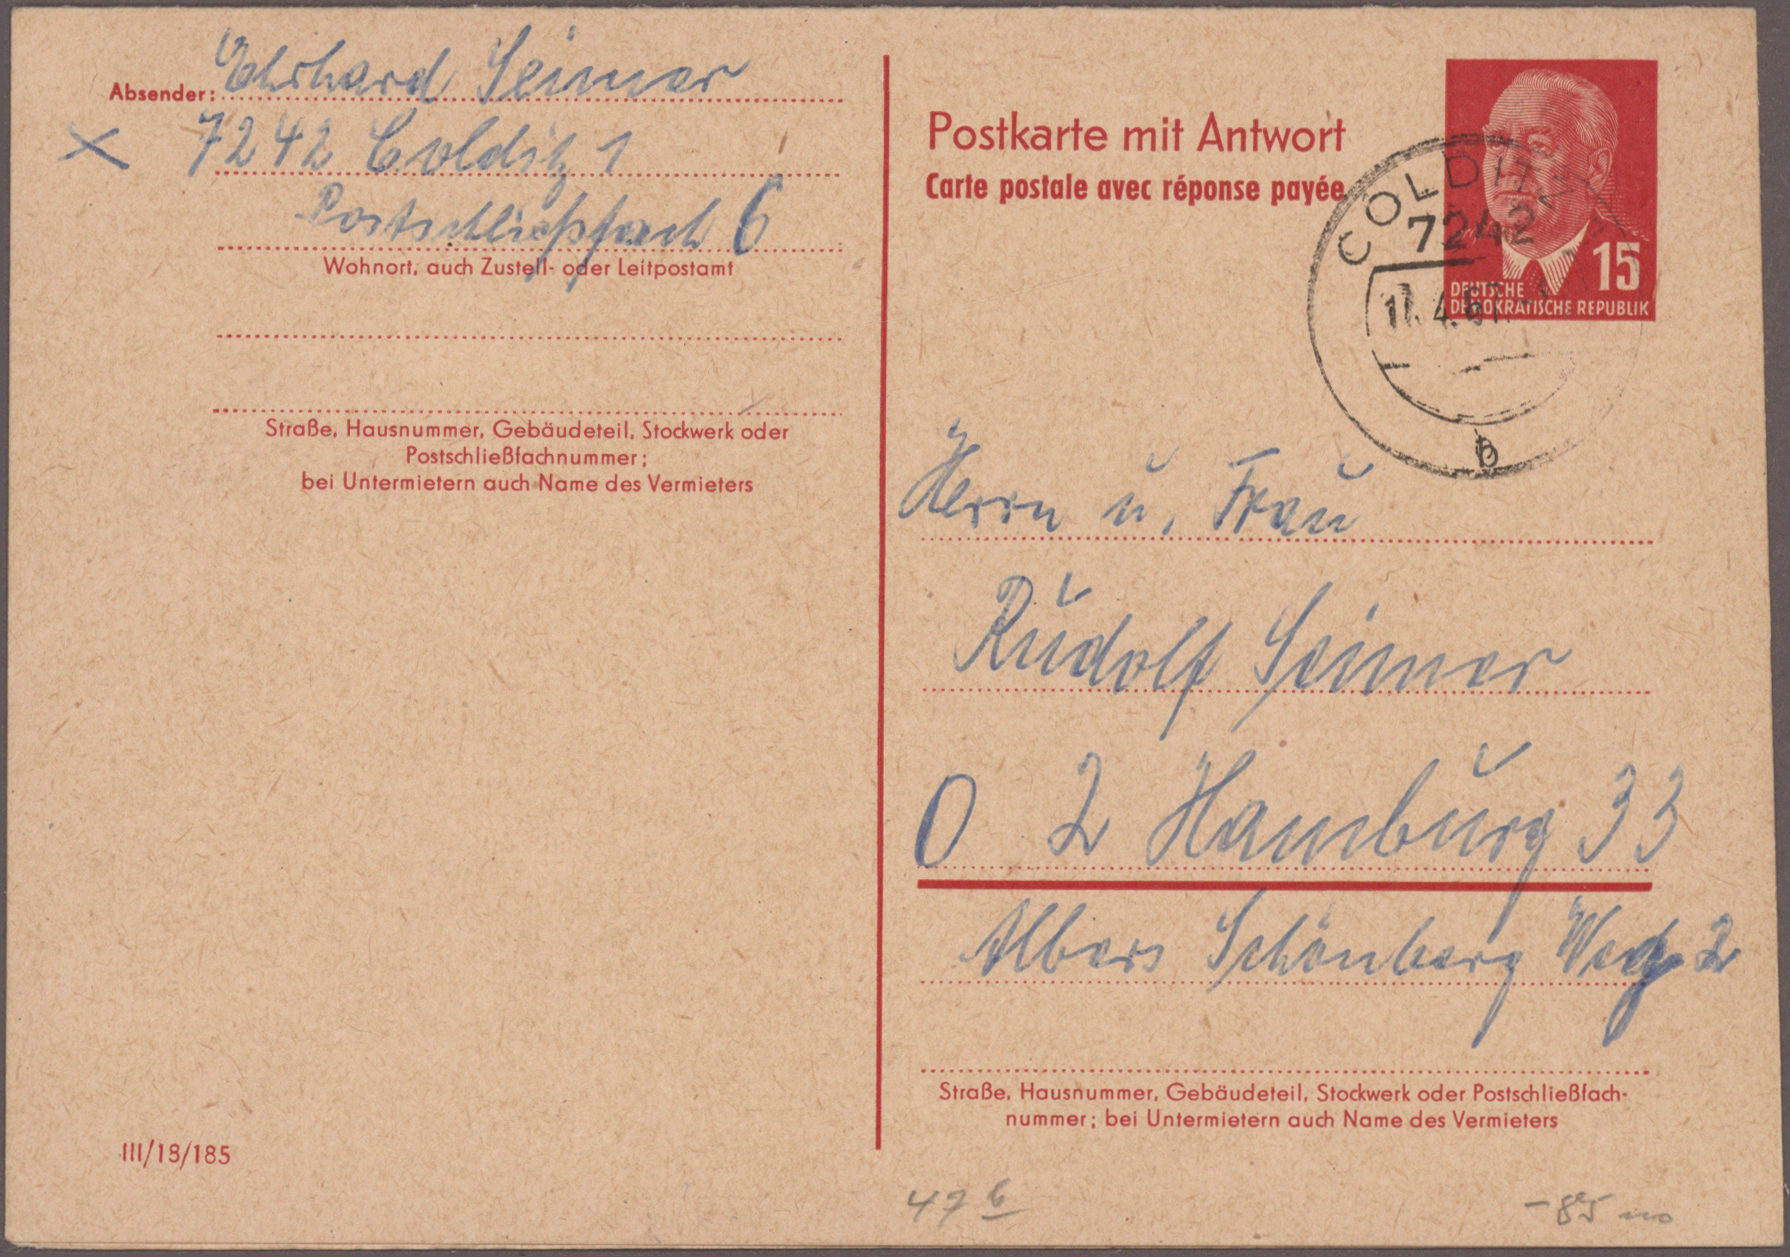 Absender: Ehrhard Seimer
X 7242 Colditz 1
Postschließfach 6
Wohnort, auch Zustell- oder Leitpostamt
Straße, Hausnummer, Gebäudeteil, Stockwerk oder
Postschließfachnummer;
bei Untermietern auch Name des Vermieters
III/18/185
Postkarte mit Antwort
Carte postale avec réponse payée
15
DEUTSCHE
DEMOKRATISCHE REPUBLIK
COLDITZ
7242
b
Herrn u. Frau
Rudolf Seimer
O 2 Hamburg 33
Albers Schönberg Weg 2
Straße, Hausnummer, Gebäudeteil, Stockwerk oder Postschließfach-
nummer; bei Untermietern auch Name des Vermieters
47 b
-85